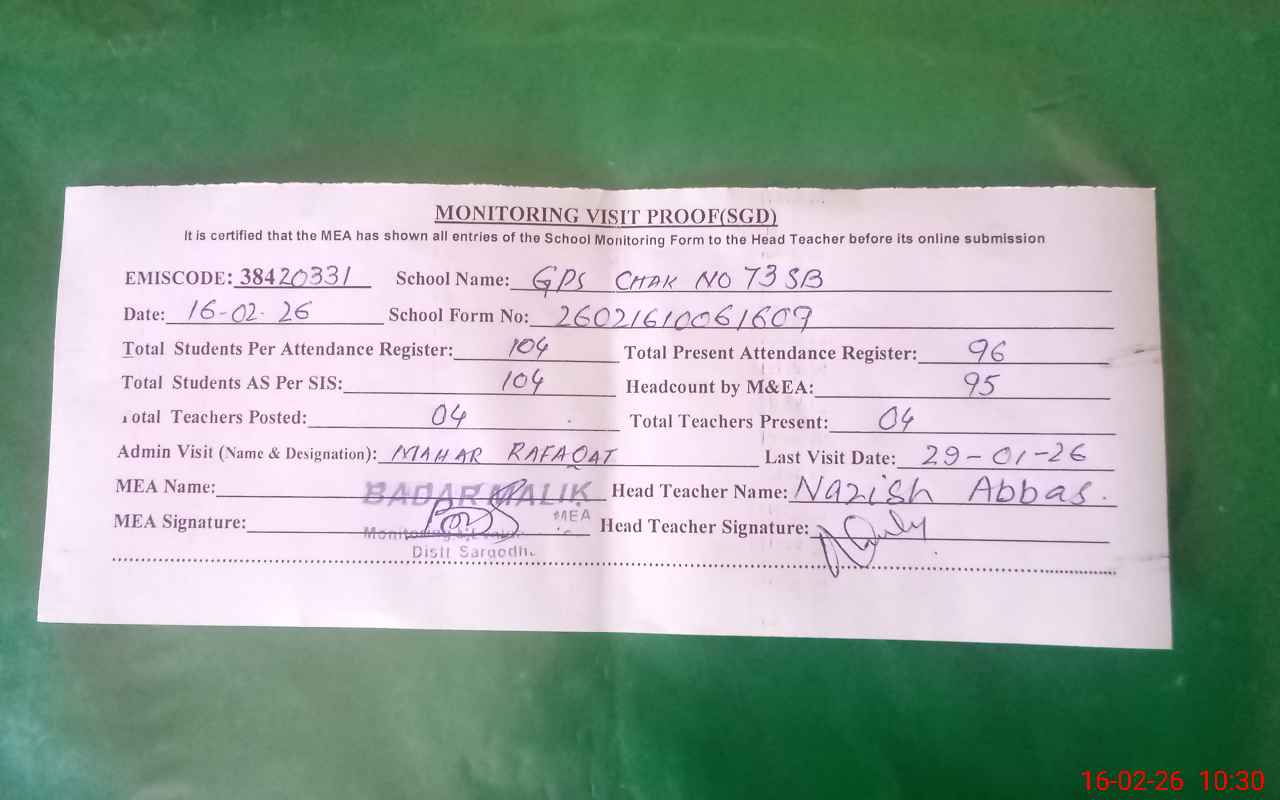 MONITORING VISIT PROOF(SGD)
It is certified that the MEA has shown all entries of the School Monitoring Form to the Head Teacher before its online submission
EMISCODE: 38420331 School Name: GPS CHAK NO 73 SB
Date: 16-02-26 School Form No: 26021610061609
Total Students Per Attendance Register: 104 Total Present Attendance Register: 96
Total Students AS Per SIS: 104 Headcount by M&EA: 95
Total Teachers Posted: 04 Total Teachers Present: 04
Admin Visit (Name & Designation): MAHAR RAFAQAT Last Visit Date: 29-01-26
MEA Name: BADAR MALIK Head Teacher Name: Nazish Abbas.
MEA
MEA Signature: Head Teacher Signature:
Monitoring
Distt Sargodh
16-02-26 10:30